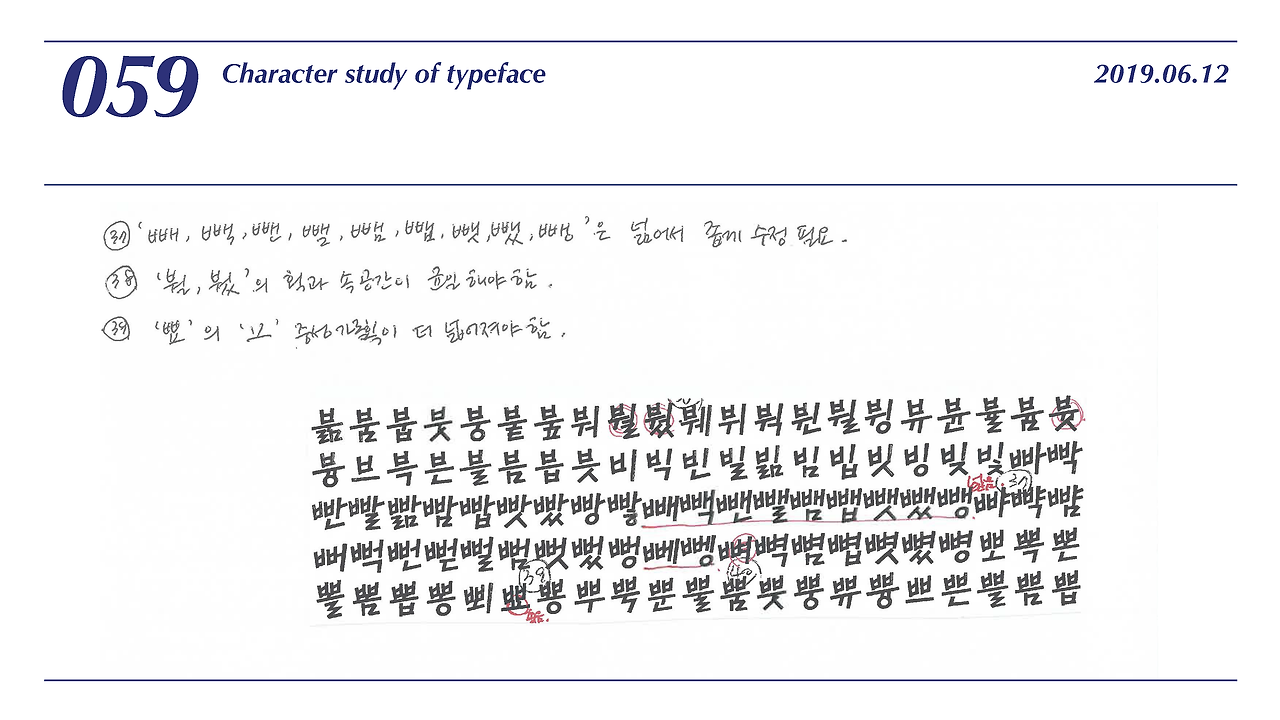 059 Character study of typeface 2019.06.12
37 '빼, 빽, 뺀, 뺄, 뺌, 뺍, 뺏, 뺐, 뺑'은 넓어서 좁게 수정 필요.
38 '붤, 붰'의 획과 속공간이 균일해야 함.
39 '뾰'의 'ㅛ' 중성가로획이 더 넓어져야 함.
붊 붐 붑 붓 붕 붙 붚 붜 붤 붰 붸 뷔 뷕 뷘 뷜 뷩 뷰 뷴 뷸 븀 븃
븅 브 븍 븐 블 븜 븝 븟 비 빅 빈 빌 빎 빔 빕 빗 빙 빚 빛 빠 빡
넓음. 37
빤 빨 빪 빰 빱 빳 빴 빵 빻 빼 빽 뺀 뺄 뺌 뺍 뺏 뺐 뺑 뺘 뺙 뺨
뻐 뻑 뻔 뻗 뻘 뻠 뻣 뻤 뻥 뻬 뼁 뼈 뼉 뼘 뼙 뼛 뼜 뼝 뽀 뽁 뽄
39 40
뽈 뽐 뽑 뽕 뾔 뾰 뿅 뿌 뿍 뿐 뿔 뿜 뿟 뿡 쀼 쁑 쁘 쁜 쁠 쁨 쁩
좁음.